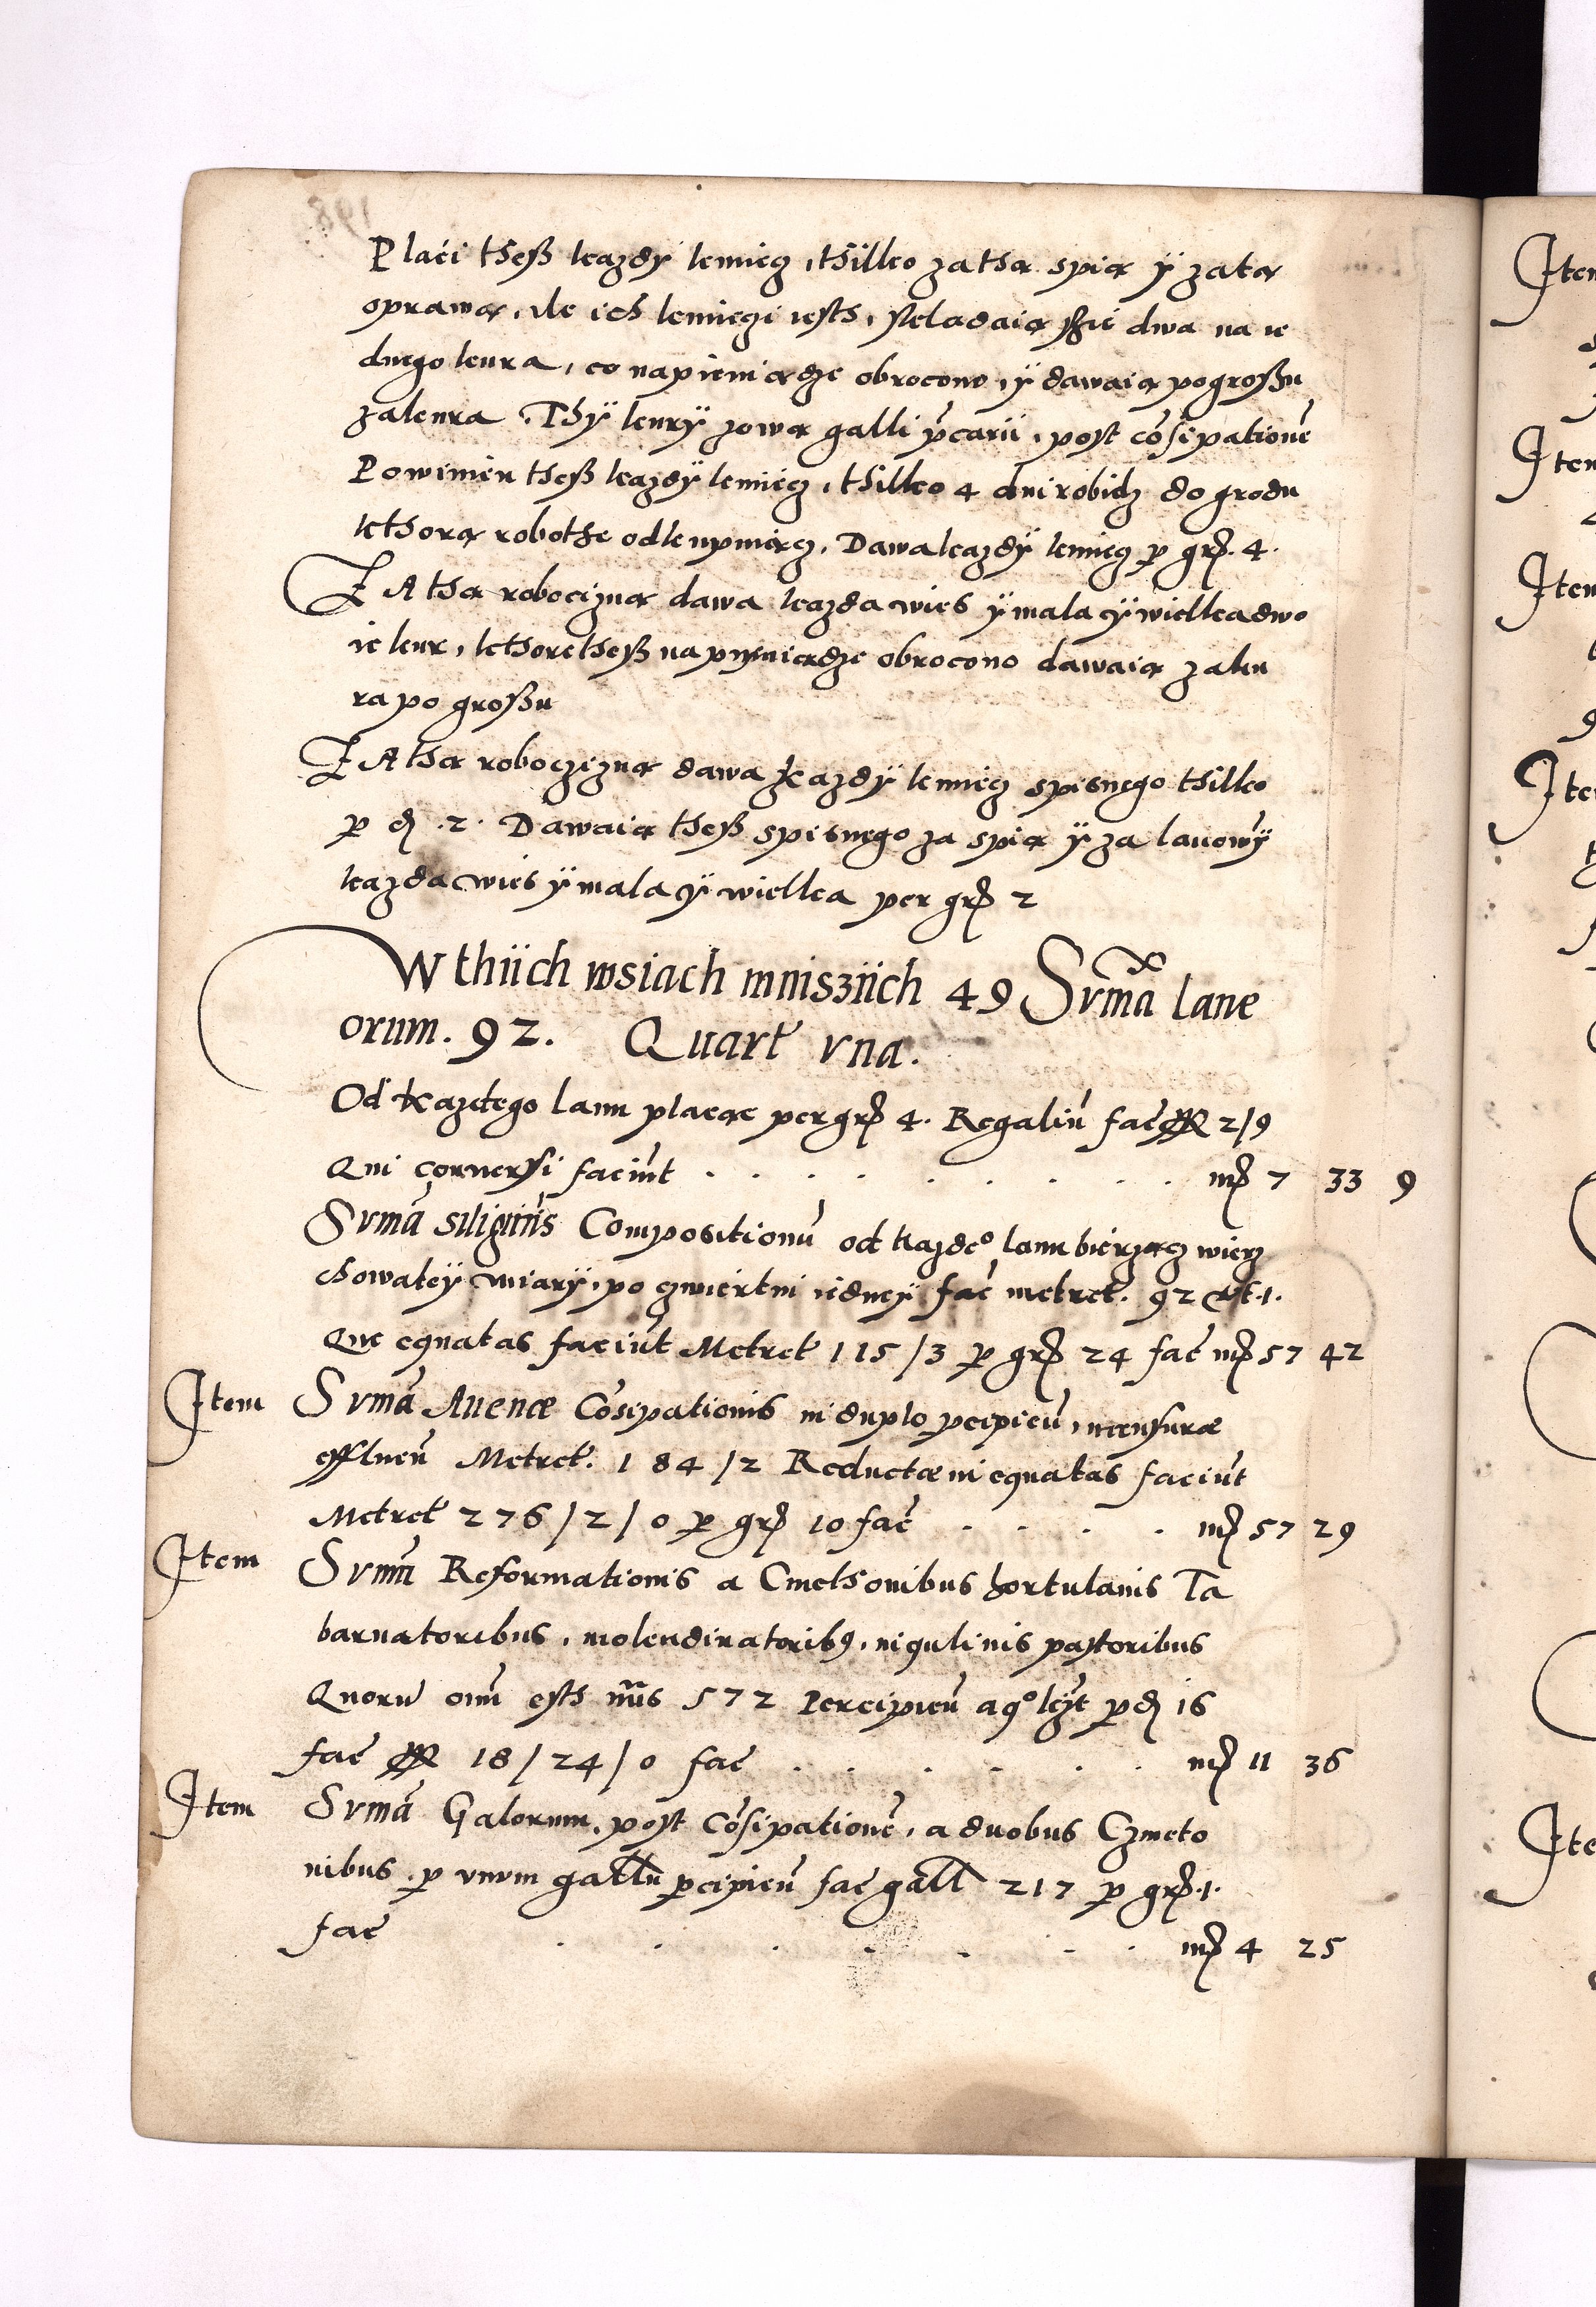 Płaci theß kazdÿ kmiecz, thÿlko za tha spia ÿ zata
oprawa, ile ich kmieczi iesth, skladaia ssie dwa na ie
dnego kura, co na pieniadze obrocono, ÿ dawaia po großu
za kura. Thÿ kurÿ zowa galli p̄carii, post cōsipationē
Powinien theß kazdÿ kmiecz, thilko 4 dni robidz do grodu
kthora robothe odkupuiacz, Dawa kazdÿ kmiecz p gr 4.
ZA tha robocizna dawa kazda wies ÿ mala ÿ wielka dwo
ie kur, kthore theß na pieniadze obrocono dawaia za ku
ra po großu
ZA tha roboczizna dawa kazdÿ kmiecz spisnego thilko
p d. 2. Dawaia theß spisnego za spia ÿ za lanowÿ
kazda wies ÿ mala ÿ wielka per gr 2
W thiich wsiach mniszÿich 49 Svmā lane
orum. 92. Quart vna.
Od kazdego lanu placæ per gr 4. Regaliū fac 2/9
Qui conuersi faciūt . . . . . . . . mr 7 33 9
Svmā siliginis Compositionū od kazdeº lanu bierzacz wierz
chowatey miarÿ, po czwiertni iedneÿ fac metret. 92 qrt. 1.
Que equatas faciūt Metret 115/3 p gr 24 fac mr 57 42
Item Svmā Auenæ Cōsipationis in duplo pcipieū, mensuræ
effluen Metret. 184/2 Reductæ in equatas faciūt
Metret 276/2/0 p gr 10 fac . . . . mr 57 29
Item Svmā Reformationis a Cmethonibus hortulanis Ta
barnatoribus, molendinatorib9, inqulinis pastoribus
Quorū oim esth nūs 572 Percipieū a q°lȝt p d 16
fac 18/24/0 fac . . . . . . mr 11 36
Item Svmā Galorum, post Cōsipationē, a duobus Czmeto
nibus p vnum gallū pcipieū fac gall 217 p gr. 1.
fac . . . . . . . mr 4 25
Item
Item
Item
Item